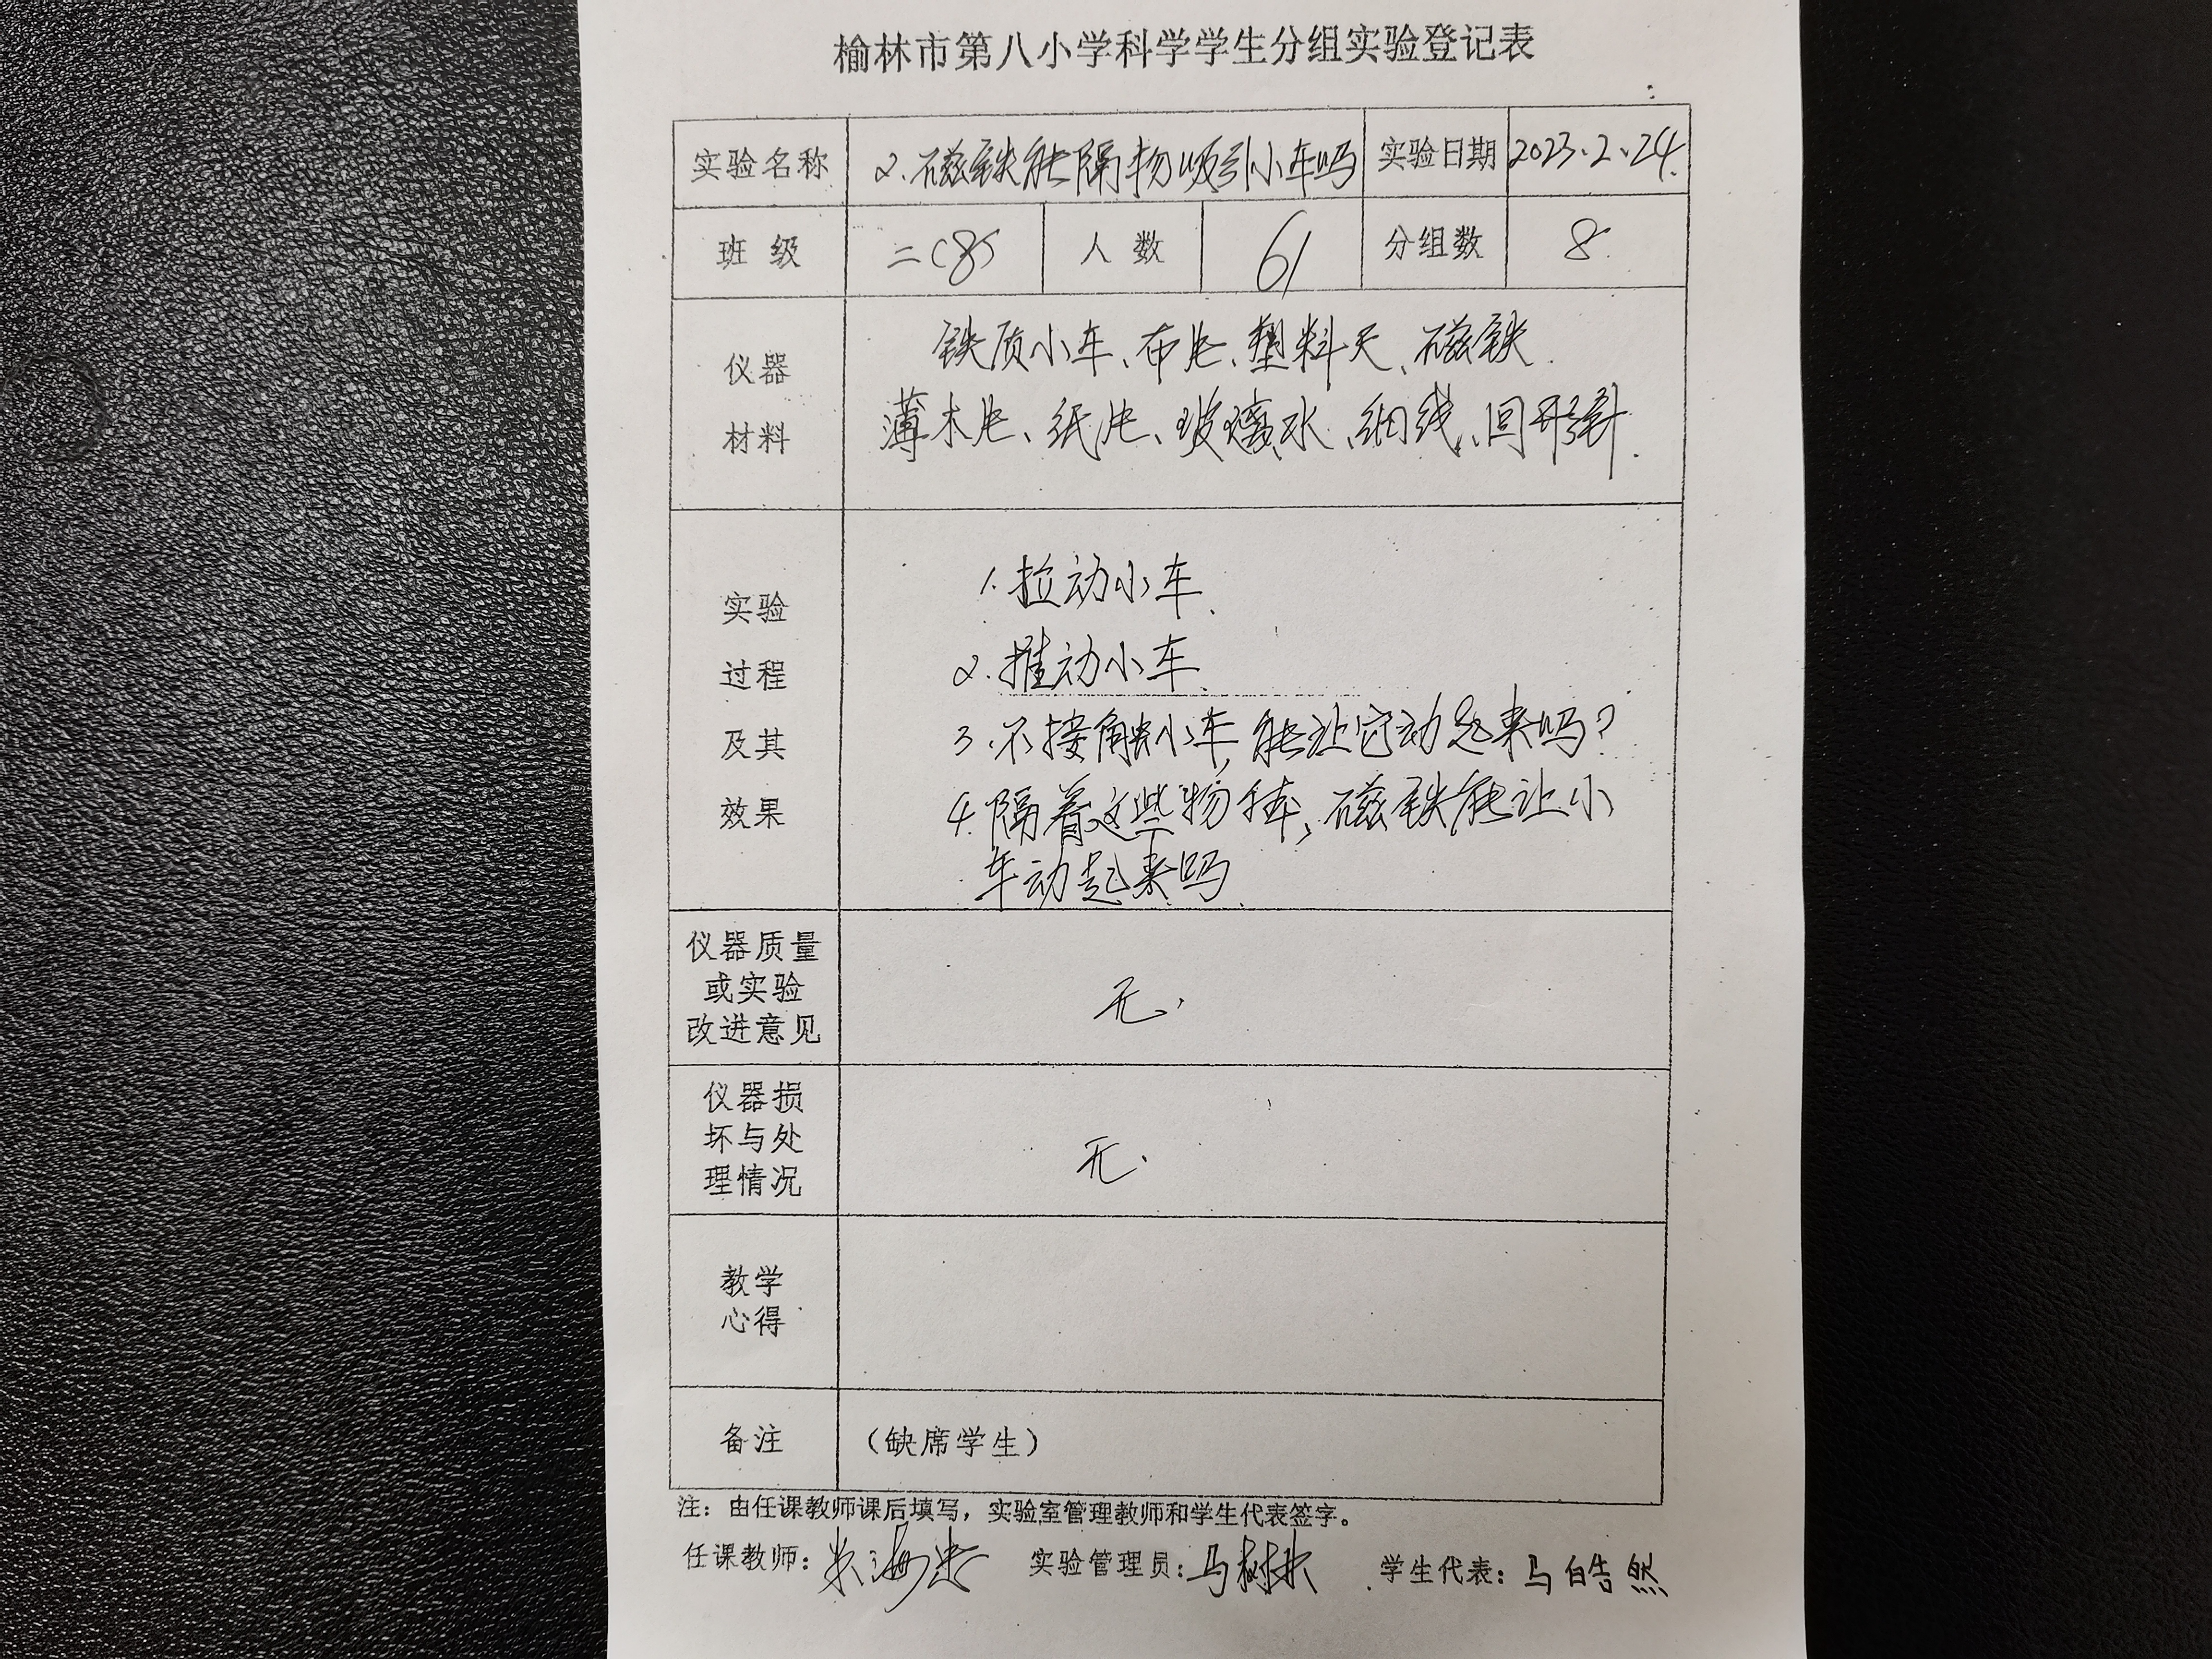 榆林市第八小学科学学生分组实验登记表
实验名称 2.磁铁能隔物吸引小车吗 实验日期 2023.2.24.
班 级 二(8) 人 数 61 分组数 8.
仪器
材料
铁质小车、布片、塑料尺、磁铁.
薄木片、纸片、玻璃水、细线、回形针.
实验
过程
及其
效果
1.拉动小车.
2.推动小车.
3.不接触小车,能让它动起来吗?
4.隔着这些物体,磁铁能让小
车动起来吗.
仪器质量
或实验
改进意见
无.
仪器损
坏与处
理情况
无.
教学
心得
备注 (缺席学生)
注：由任课教师课后填写，实验室管理教师和学生代表签字。
任课教师: 实验管理员:马树林 学生代表:马皓然